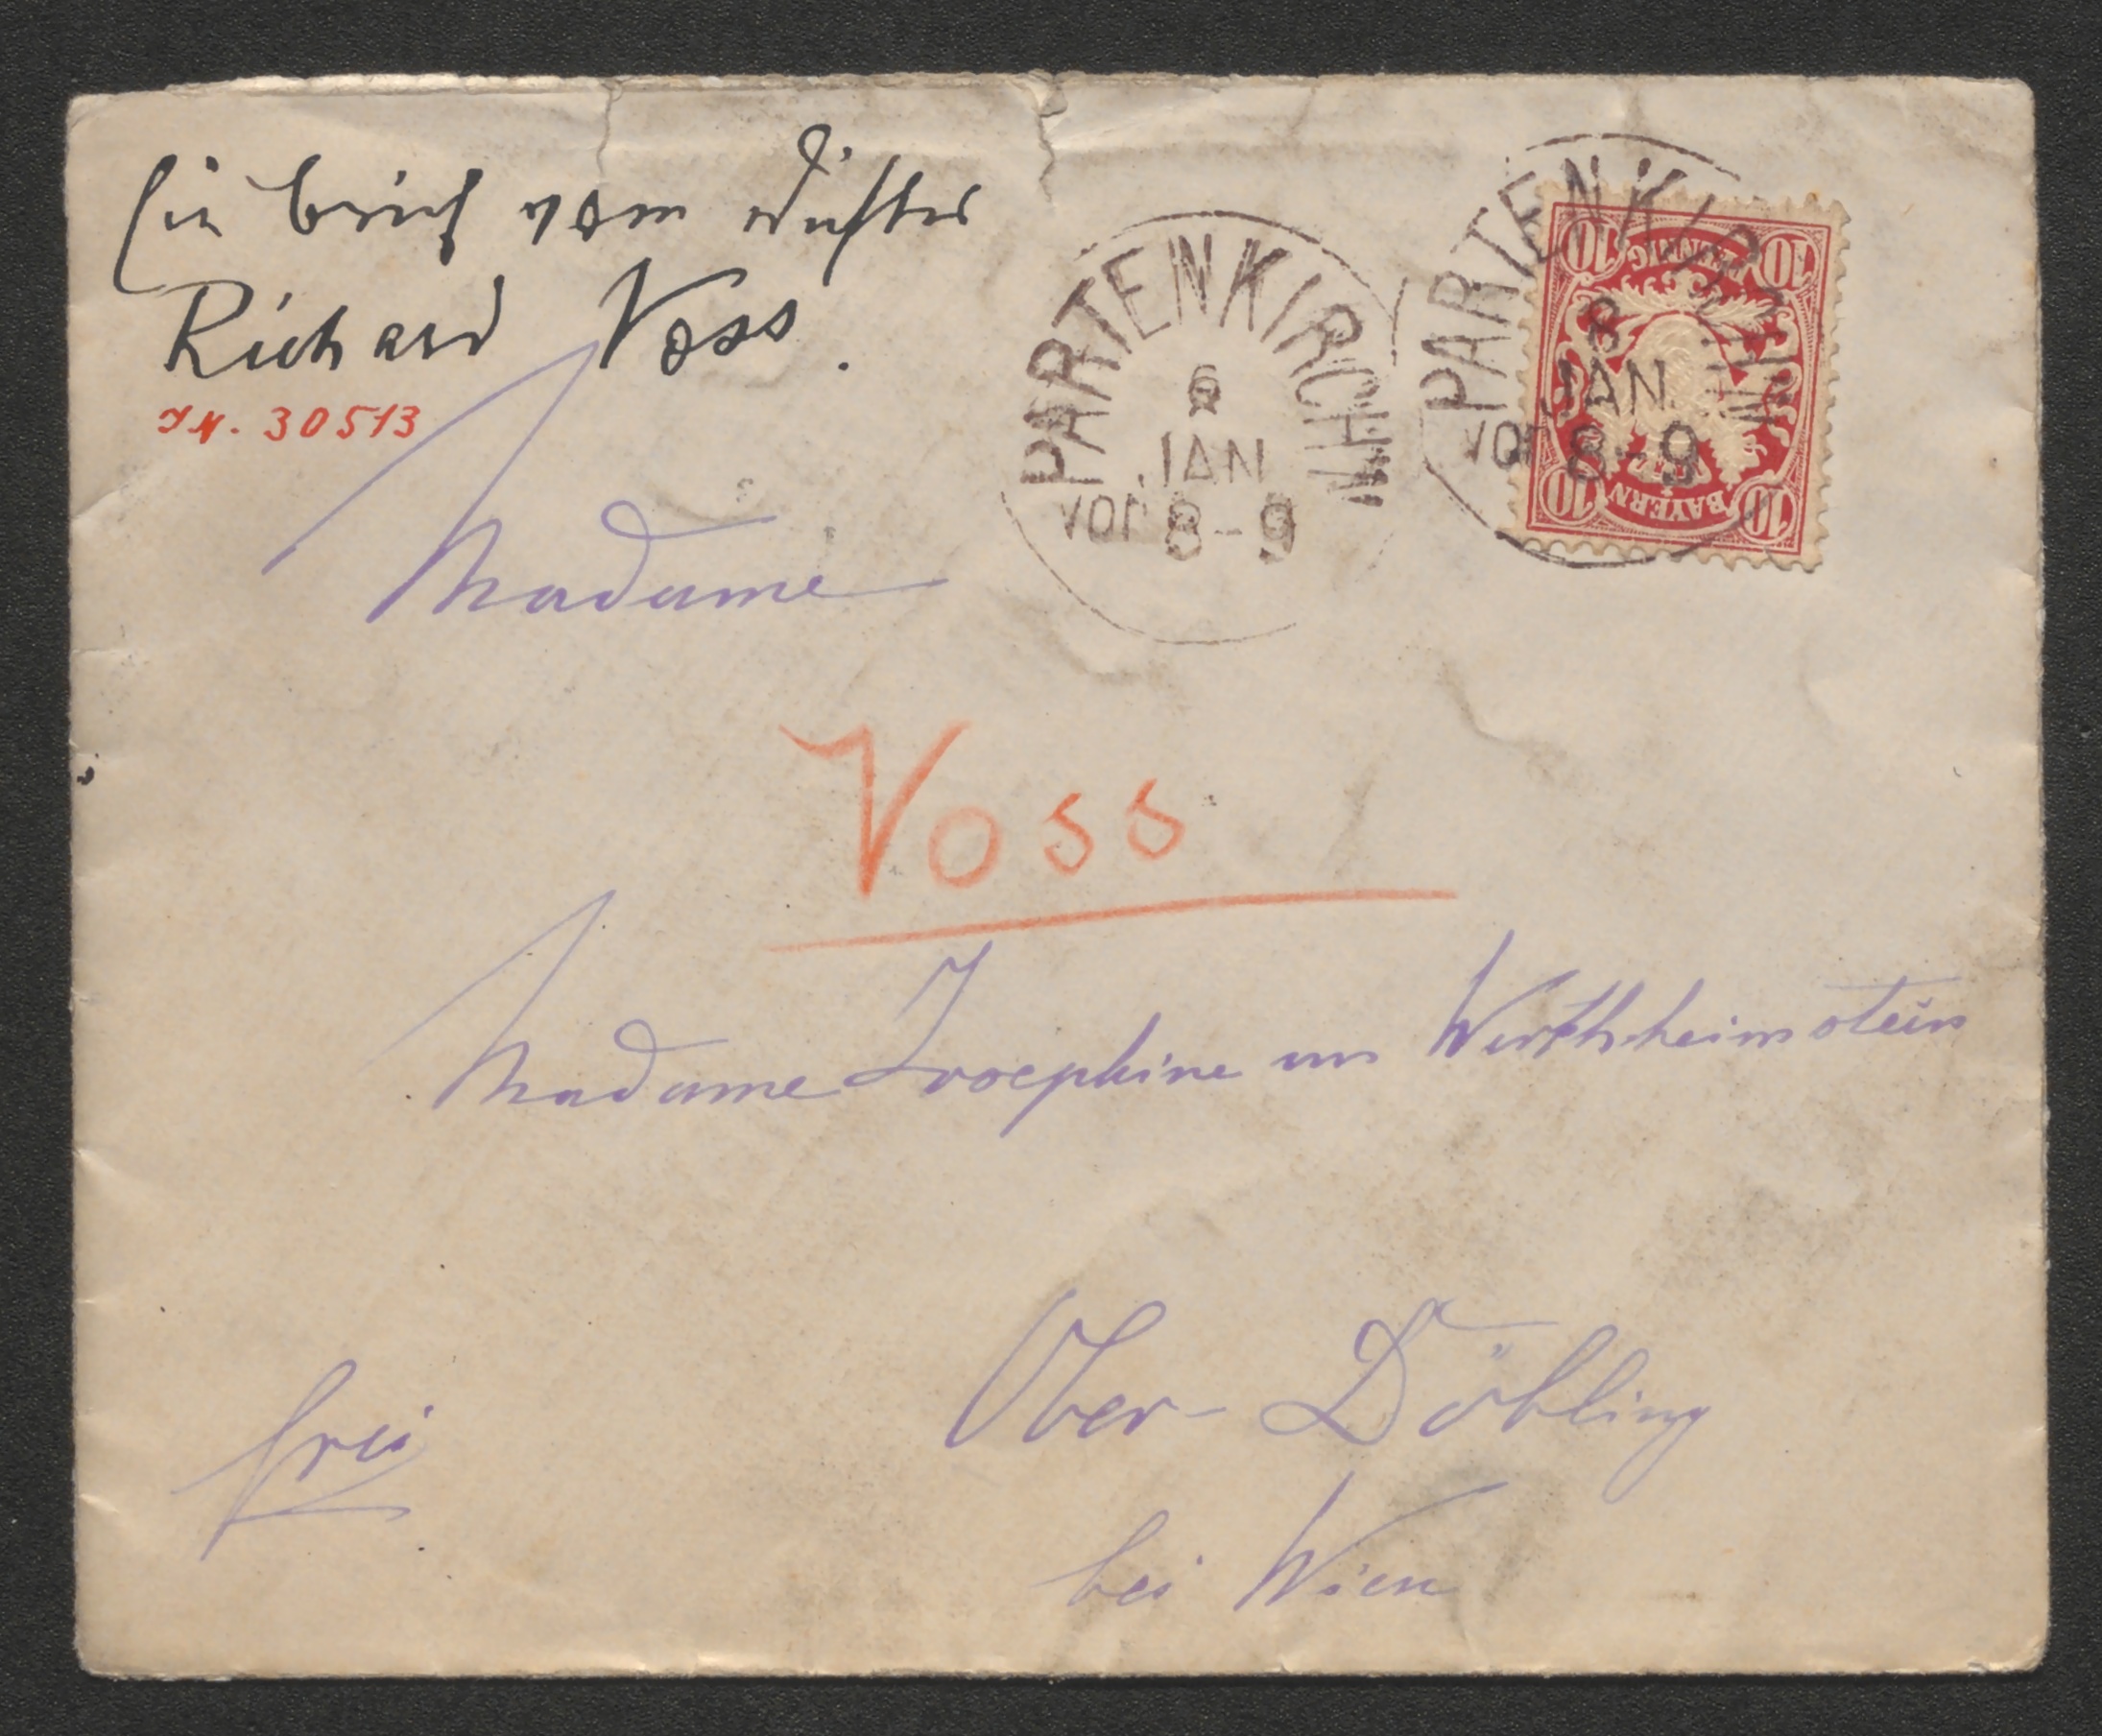 Ein Brief vom Dichter
Richard Voss.
I.N. 30513
PARTENKIRCHEN
8
JAN
vor 8-9
PARTENKIRCHEN
8
JAN
vor 8-9
10 PFENNIG 10
10 BAYERN 10
Madame
Voss
Madame Josephine von Werthheimstein
frei
Ober-Döbling
bei Wien